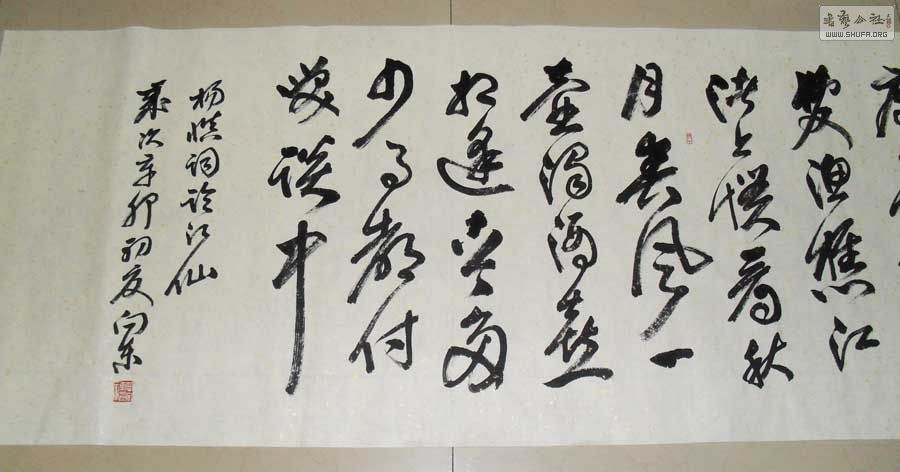 发渔樵江
渚上惯看秋
月春风一
壶浊酒喜
相逢古今多
少事都付
笑谈中
杨慎词临江仙
岁次辛卯初夏向东
书艺公社
WWW.SHUFA.ORG